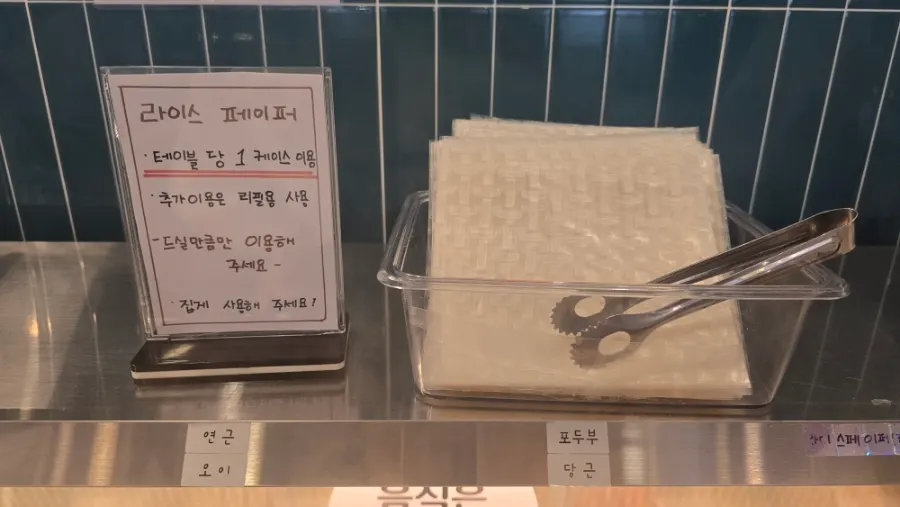 라이스 페이퍼
· 테이블 당 1 케이스 이용
· 추가이용은 리필용 사용
- 드실만큼만 이용해
주세요 -
· 집게 사용해 주세요!
연근
오이
포두부
당근
스페이퍼
음식은